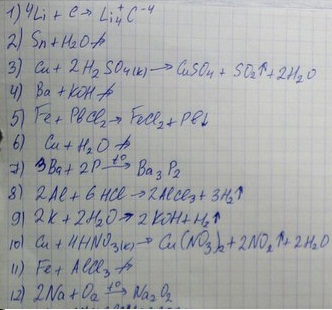 1) 4Li + C → Li₄⁺C⁻⁴
2) Sn + H₂O ↛
3) Cu + 2H₂SO₄(к) → CuSO₄ + SO₂↑ + 2H₂O
4) Ba + KOH ↛
5) Fe + PbCl₂ → FeCl₂ + Pb↓
6) Cu + H₂O ↛
7) 3Ba + 2P →t° Ba₃P₂
8) 2Al + 6HCl → 2AlCl₃ + 3H₂↑
9) 2K + 2H₂O → 2KOH + H₂↑
10) Cu + 4HNO₃(к) → Cu(NO₃)₂ + 2NO₂↑ + 2H₂O
11) Fe + AlCl₃ ↛
12) 2Na + O₂ →t° Na₂O₂